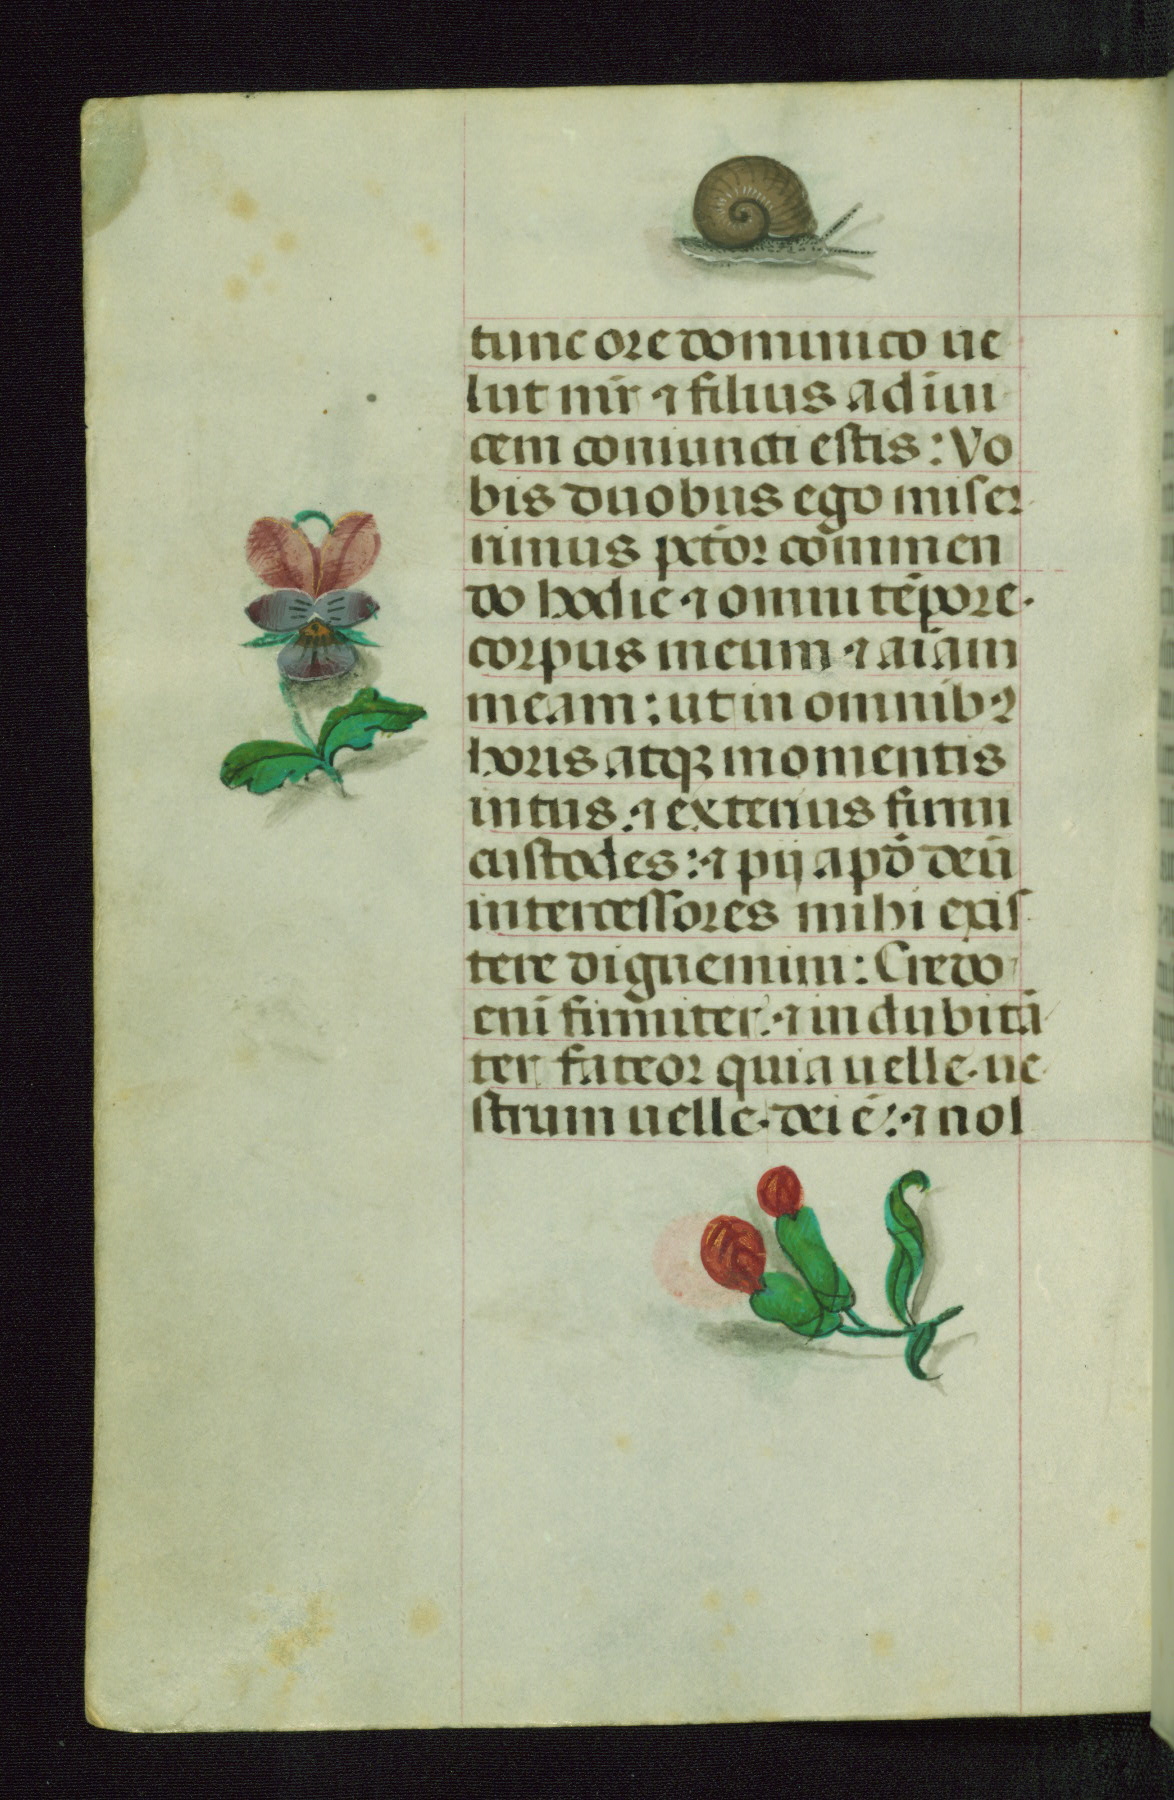 tunc ore dominico ue
lut mr̄ ⁊ filius ad inui
cem coniuncti estis: Vo
bis duobus ego miser
rimus pctōr cōmmen
do hodie ⁊ omni tēpore
corpus meum ⁊ aīam
meam: ut in omnibꝰ
horis atqꝫ momentis
intus ⁊ exterius firmi
custodes: ⁊ pij apd̄ deū
intercessores mihi exis
tere dignemini: Credo
enī firmiter: ⁊ indubitā
ter fateor quia uelle ue
strum uelle dei ē: ⁊ nol